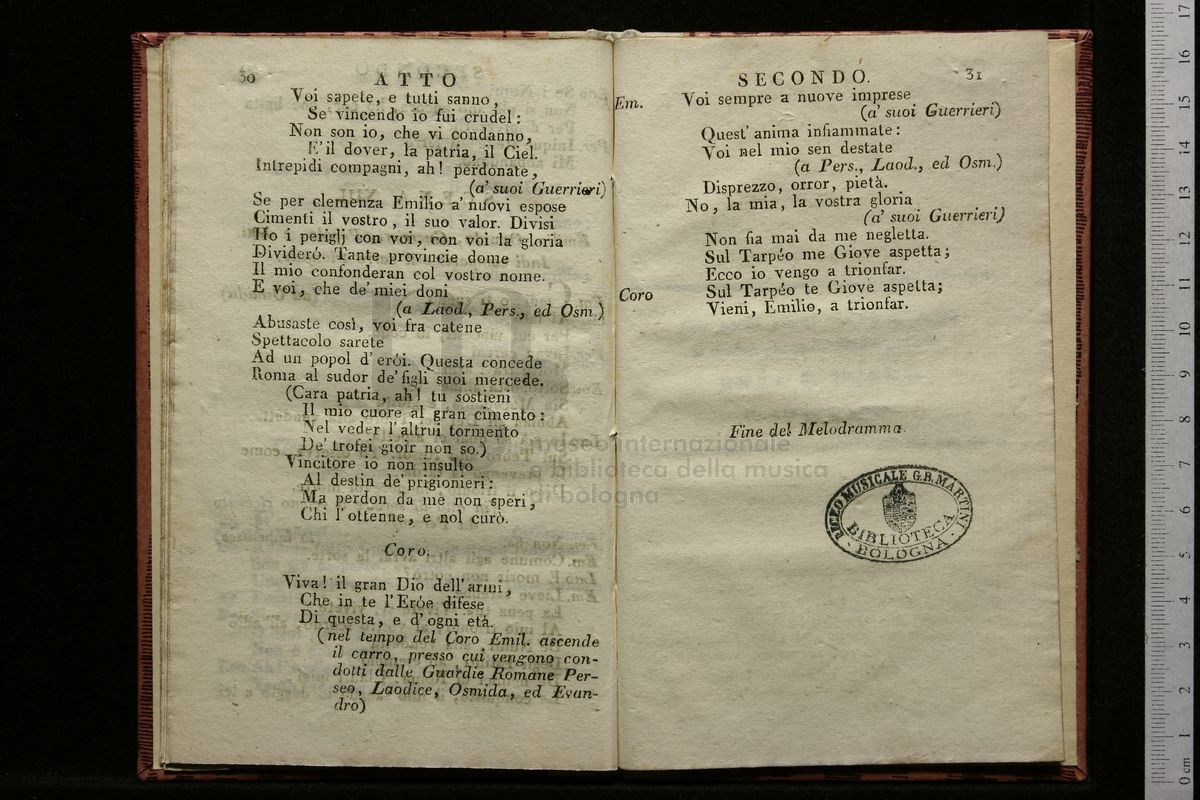 30 ATTO
Voi sapete, e tutti sanno,
Se vincendo io fui crudel:
Non son io, che vi condanno,
E'il dover, la patria, il Ciel.
Intrepidi compagni, ah! perdonate,
(a' suoi Guerrieri)
Se per clemenza Emilio a' nuovi espose
Cimenti il vostro, il suo valor. Divisi
Ho i periglj con voi, con voi la gloria
Dividerò. Tante provincie dome
Il mio confonderan col vostro nome.
E voi, che de' miei doni
(a Laod., Pers., ed Osm.)
Abusaste così, voi fra catene
Spettacolo sarete
Ad un popol d'erói. Questa concede
Roma al sudor de' figli suoi mercede.
(Cara patria, ah! tu sostieni
Il mio cuore al gran cimento:
Nel veder l'altrui tormento
De' trofei gioir non so.)
Vincitore io non insulto
Al destin de' prigionieri:
Ma perdon da me non speri,
Chi l'ottenne, e nol curò.
Coro.
Viva! il gran Dio dell'armi,
Che in te l'Eróe difese
Di questa, e d'ogni età.
(nel tempo del Coro Emil. ascende
il carro, presso cui vengono con-
dotti dalle Guardie Romane Per-
seo, Laodice, Osmida, ed Evan-
dro)
SECONDO. 31
Em. Voi sempre a nuove imprese
(a' suoi Guerrieri)
Quest' anima infiammate:
Voi nel mio sen destate
(a Pers., Laod., ed Osm.)
Disprezzo, orror, pietà.
No, la mia, la vostra gloria
(a' suoi Guerrieri)
Non fia mai da me negletta.
Sul Tarpéo me Giove aspetta;
Ecco io vengo a trionfar.
Coro Sul Tarpéo te Giove aspetta;
Vieni, Emilio, a trionfar.
Fine del Melodramma.
museo internazionale
e biblioteca della musica
di bologna
MUSICALE G.B. MARTINI
BIBLIOTECA
· BOLOGNA ·
0 cm 1 2 3 4 5 6 7 8 9 10 11 12 13 14 15 16 17